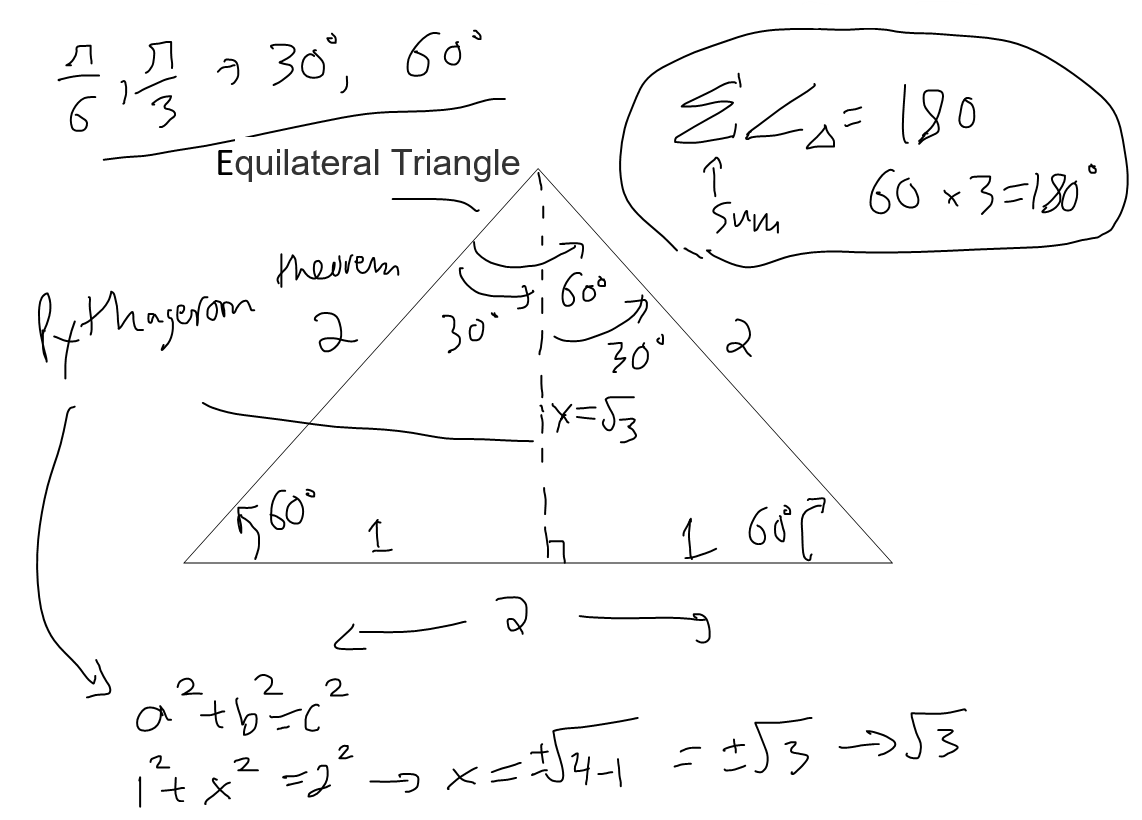 π/6, π/3 → 30°, 60°
Σ∠△ = 180
60 × 3 = 180°
↑
Sum
Equilateral Triangle
Pythagerom theorem
2
30°
60°
30°
2
x = √3
60°
1
1
60°
2
a² + b² = c²
1² + x² = 2² → x = ±√4-1 = ±√3 → √3